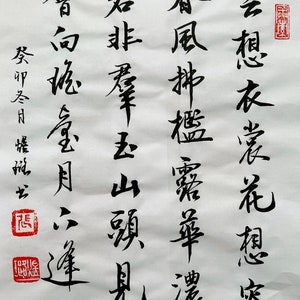 云想衣裳花想容
春風拂檻露華濃
若非羣玉山頭見
會向瑤臺月下逢
癸卯冬月
書
張